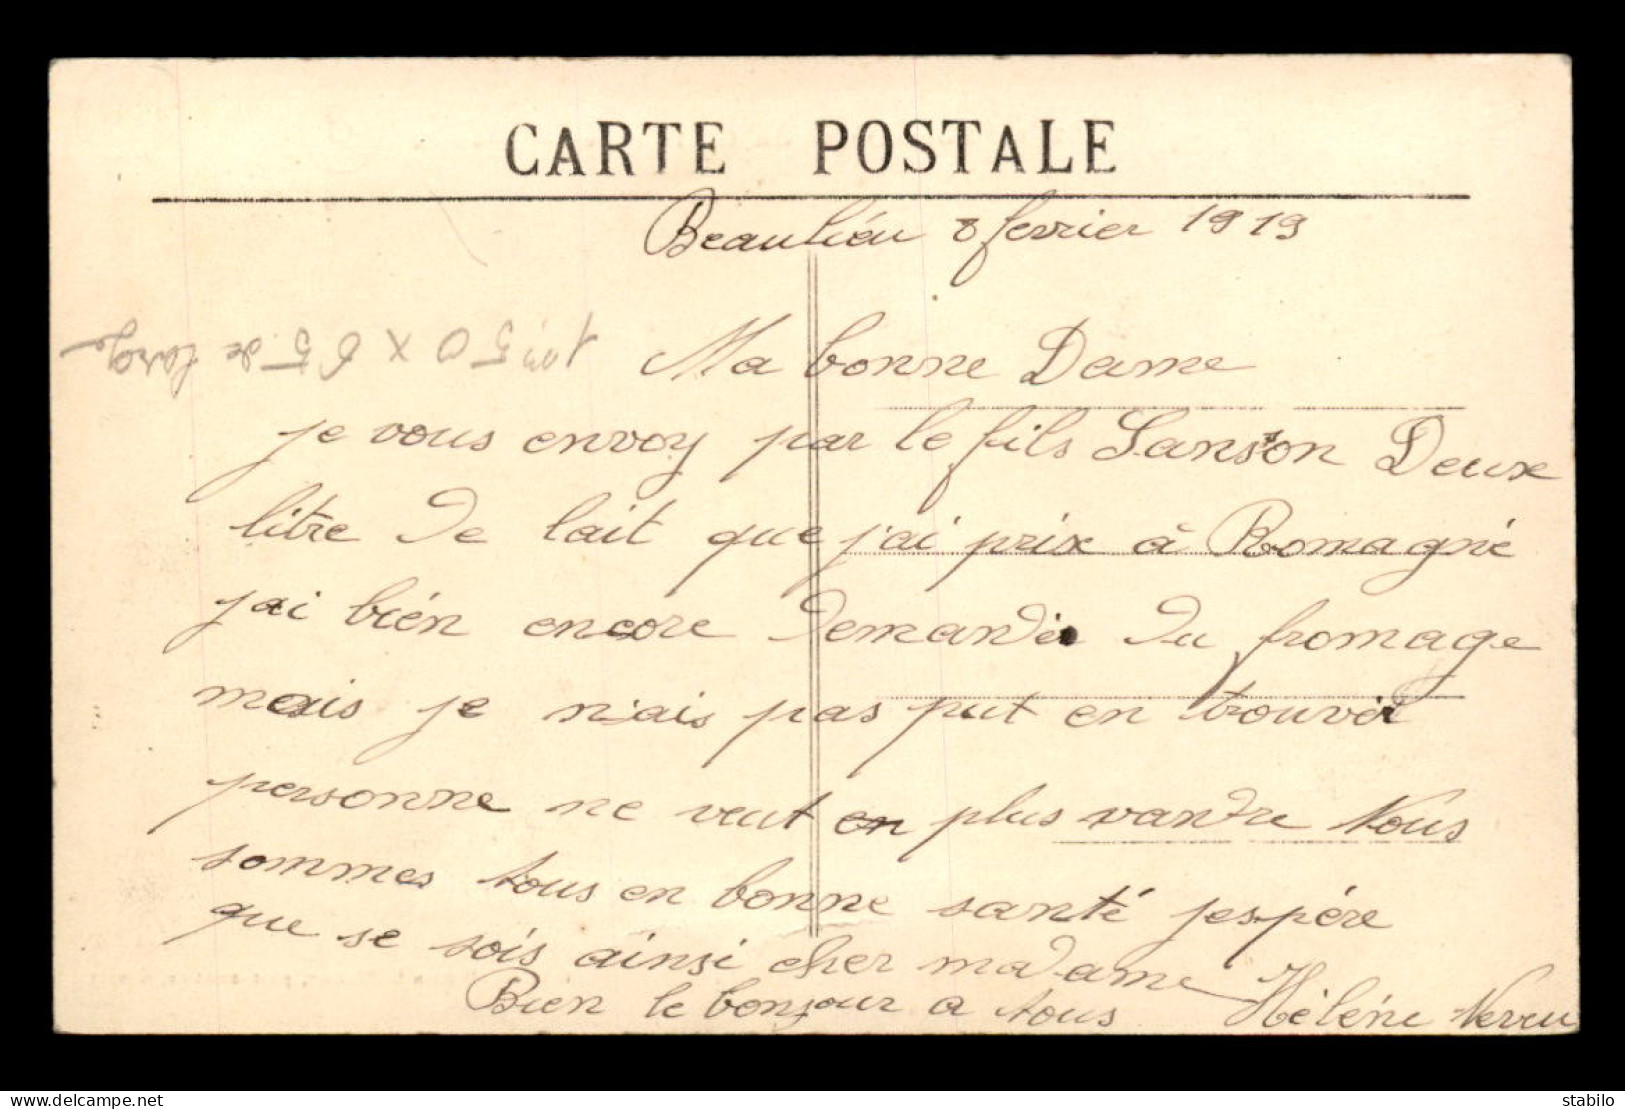 CARTE POSTALE
Beauliéu 8 fevrier 1919
1m,50 x 65 de large
Ma bonne Dame
je vous envoy par le fils Sanson Deux
litre de lait que j'ai prix à Romagné
j'ai bién encore demandér du fromage
mais je n'ais pas put en trouvér
personne ne veut en plus vandre Nous
sommes tous en bonne santé jespére
que se sois ainsi cher madame
Bien le bonjour a tous Hèléne Neveu
delcampe.net
stabilo